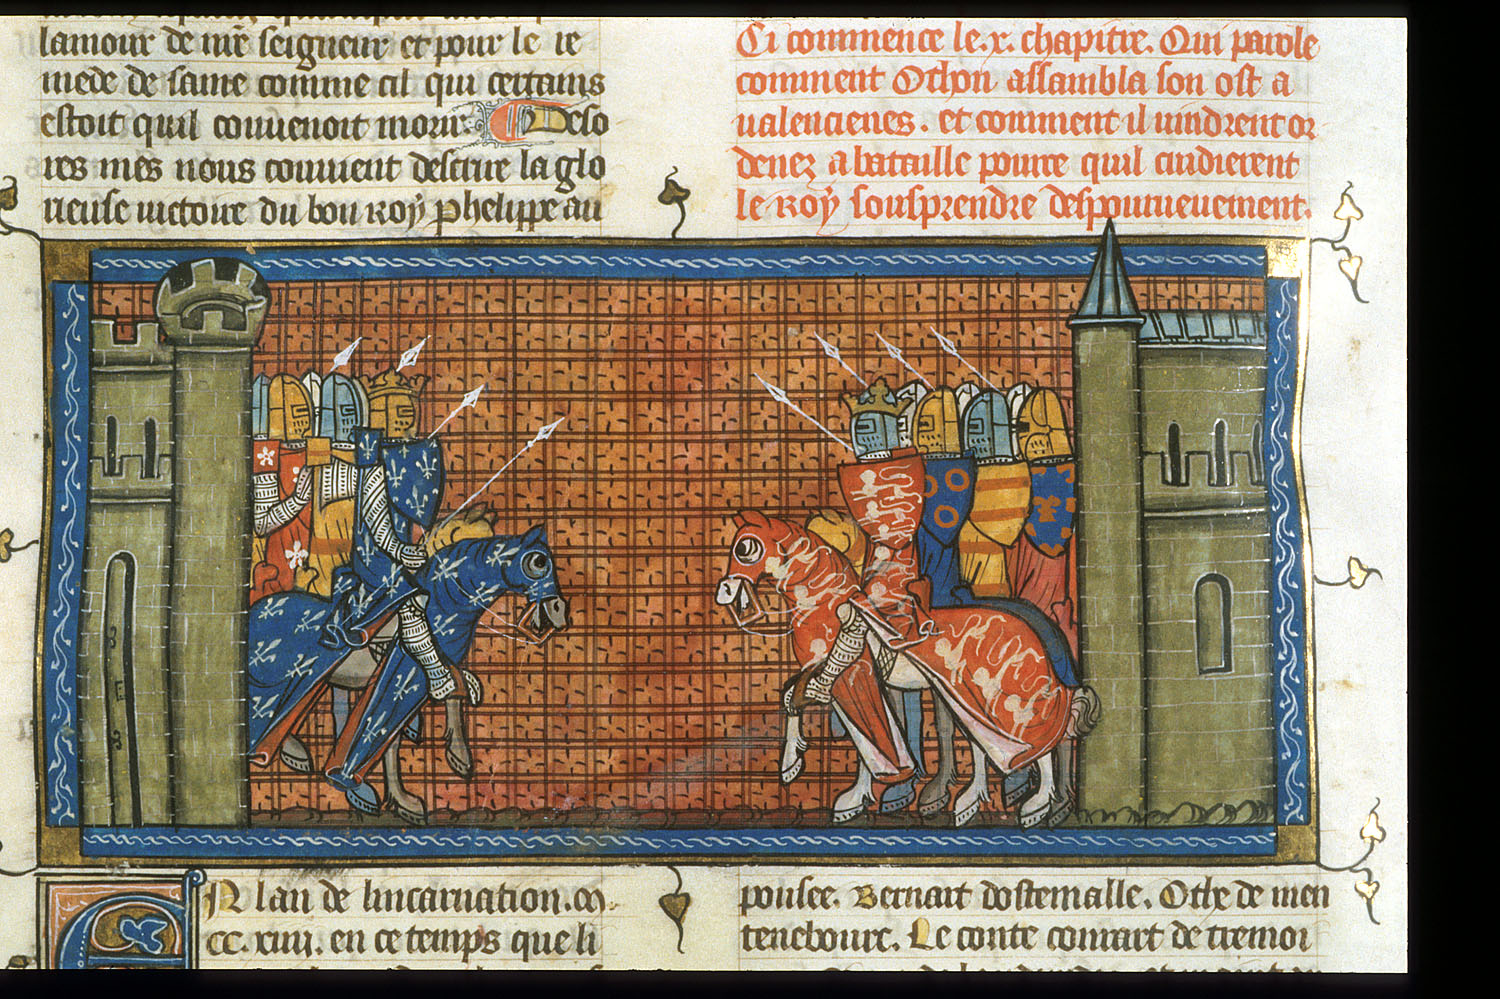 lamour de nr̄e seigneur et pour le re
mede de same comme cil qui certains
estoit quil couuenoit morir. Deso
res mes nous conuient descrire la glo
rieuse uictoire du bon roy phelippe au
Ci commence le .x. chapitre. Qui parole
comment Othon assambla son ost a
ualencienes. et comment il uindrent or
denez a bataille pource quil cuidierent
le Roy sousprendre despourueuement.
EN lan de lincarnation .m.
cc. xiiii. en ce temps que li
pousee. Bernart dostemalle. Othe de men
tenebourc. Le conte conrart de tremoi